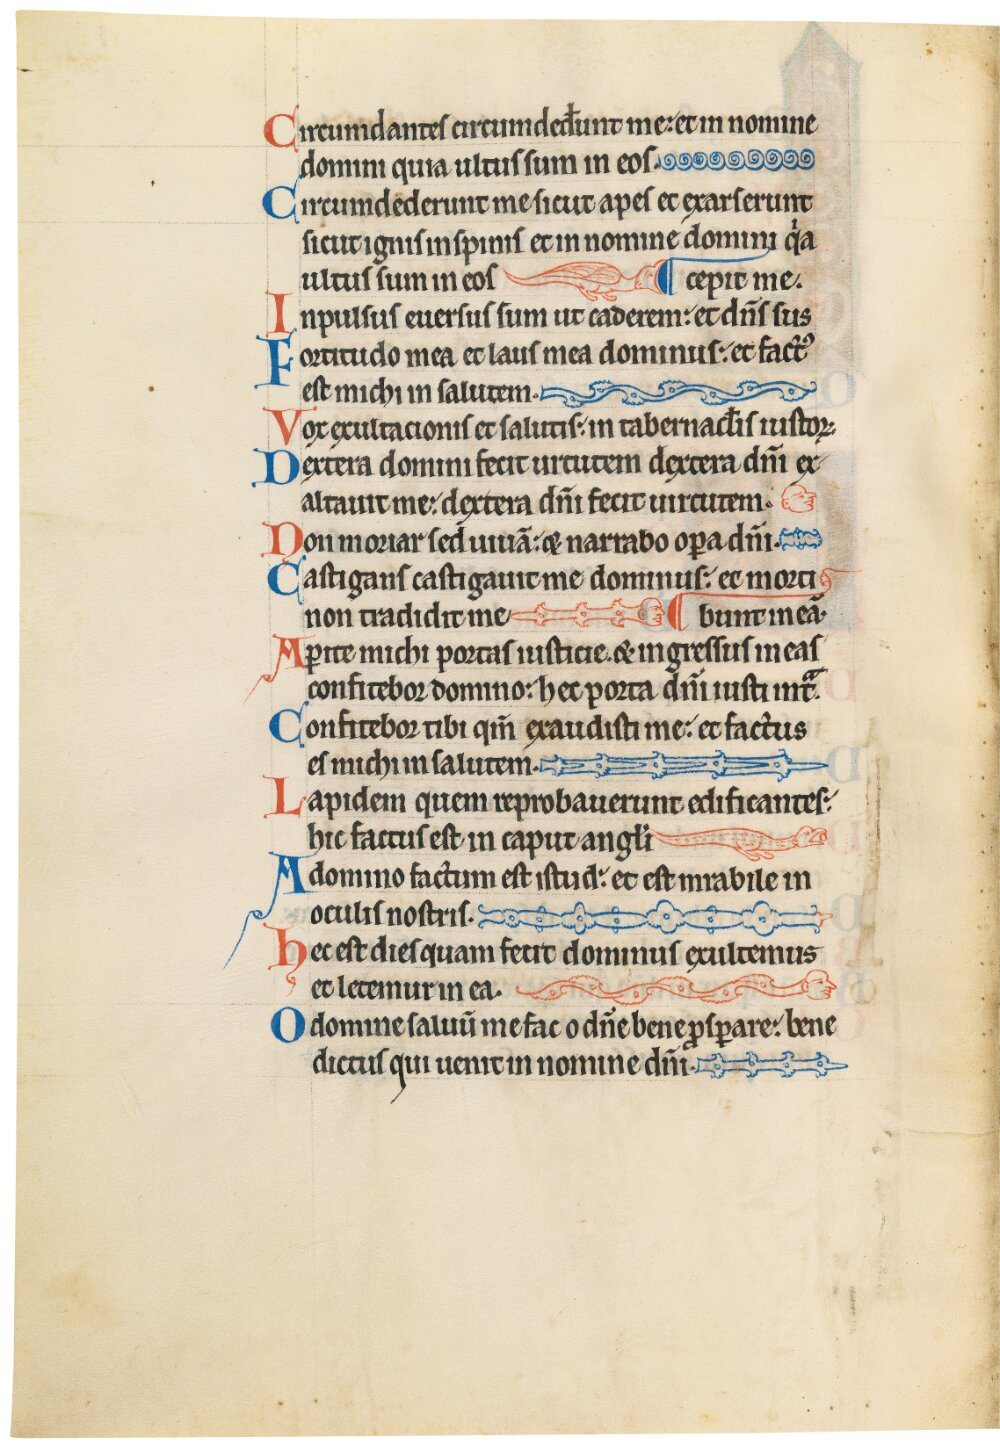 Circumdantes circumdedert me: et in nomine
domini quia ultus sum in eos.
Circumdederunt me sicut apes et exarserunt
sicut ignis in spinis et in nomine domini qia
ultus sum in eos cepit me.
Inpulsus euersus sum ut caderem: et dñs sus
Fortitudo mea et laus mea dominus: et fact᷒
est michi in salutem.
Vox exultacionis et salutis: in tabernaclis iustoꝝ:
Dextera domini fecit uirtutem dextera dñi ex
altauit me: dextera dñi fecit uirtutem.
Non moriar sed uiuā: & narrabo oꝑa dñi.
Castigans castigauit me dominus: et morti
non tradidit me bunt in eā.
Aꝑite michi portas iusticie. & ingressus in eas
confitebor domino: hec porta dñi iusti int̃ᵃ.
Confitebor tibi qm̃ exaudisti me: et factus
es michi in salutem.
Lapidem quem reprobauerunt edificantes:
hic factus est in caput angli
A domino factum est istud: et est mirabile in
oculis nostris.
hec est dies quam fecit dominus exultemus
et letemur in ea.
O domine saluū me fac o dñe bene ꝓsꝑare: bene
dictus qui uenit in nomine dñi.